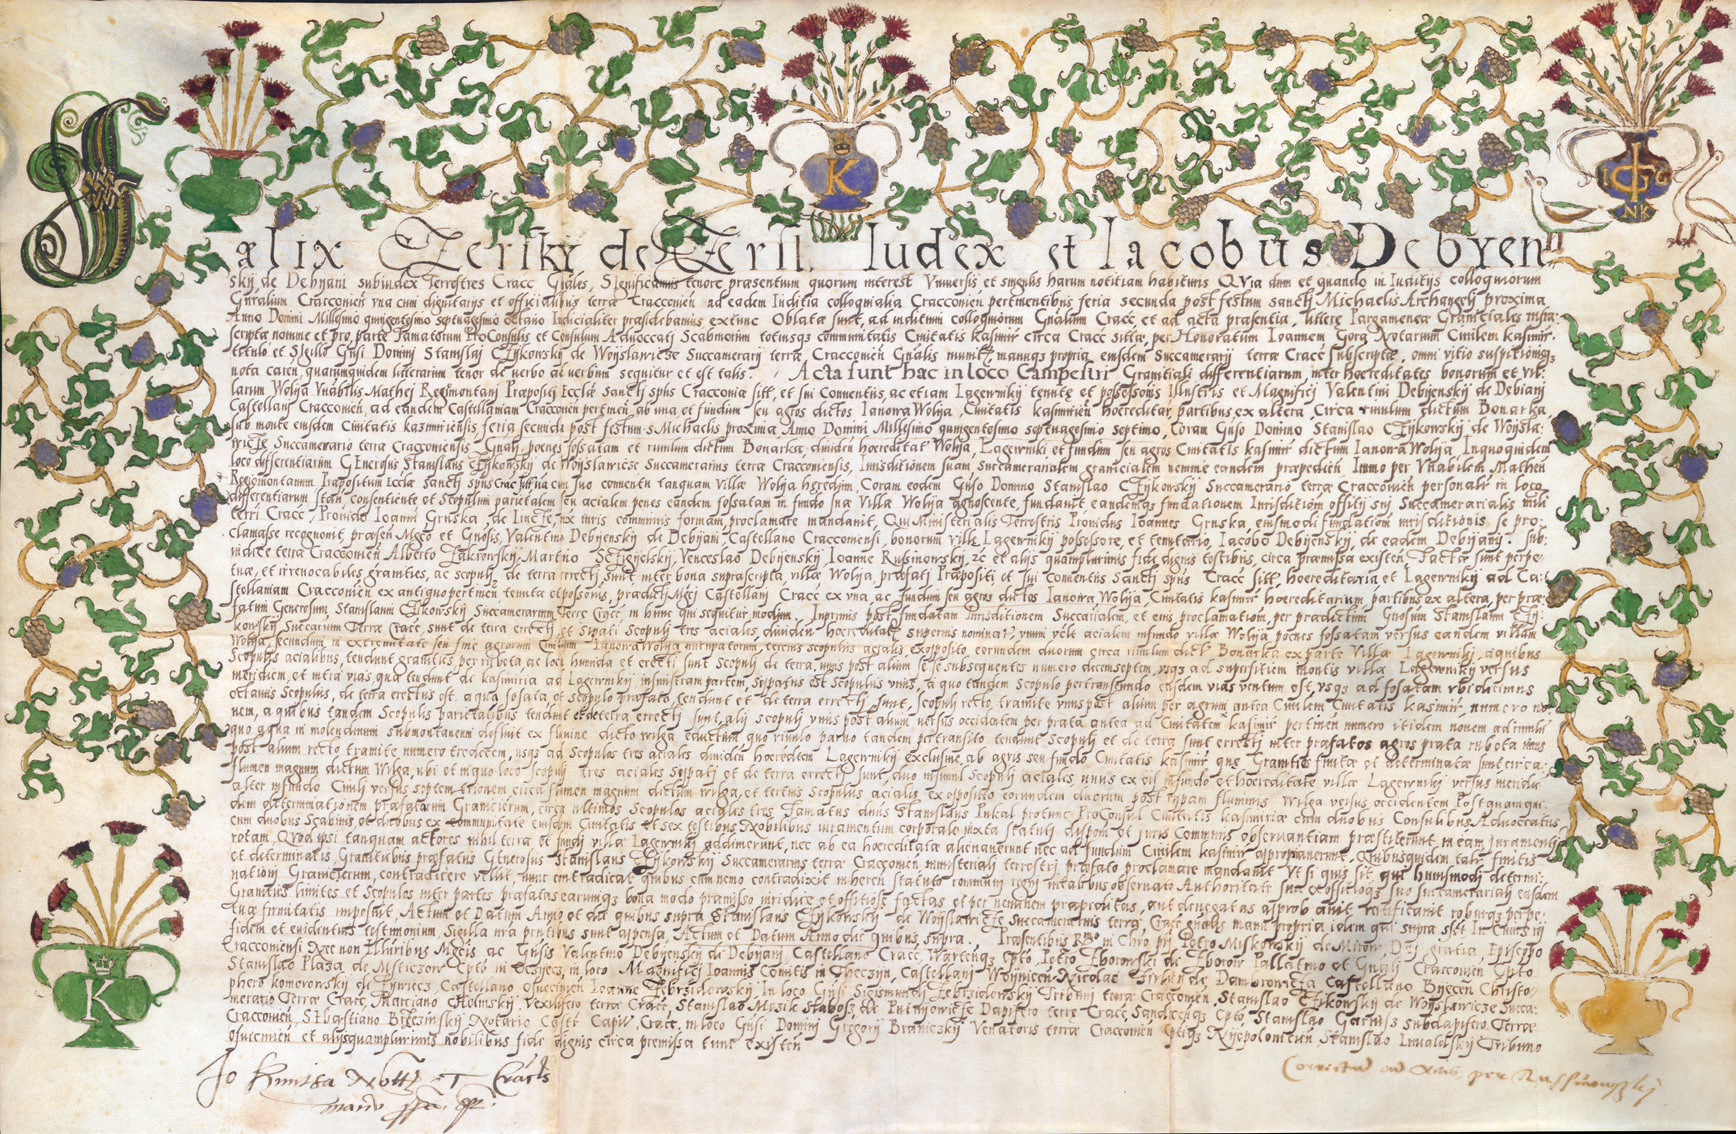 K
IGC
NK
Felix Czerski de Czersk. Iudex et Iacobus Debyen
skij, de Debÿani subiudex Terrestres Cracc Gnãles, Significamus tenore præsentum quorum interest Vniuersis et singulis harum notitiam habituris QVia dum et quando in Iuditijs colloquiorum
Gnralium Cracconien vna cum dignitarijs et officialibus terræ Cracconien ad eadem Iuditia colloquialia Cracconien pertinentibus feria secunda post festum sancti Michaelis Archangeli proxima
Anno Domini Millesimo quingentesimo septuagesimo octauo Iudicialiter præsidebamus extunc Oblatæ sunt, ad iuditium colloquiorum Gnalium Cracc, et ad acta præsentia, litteræ Pargameneæ Granitiales infra
scripta nomine et pro parte Famatorum ProConsulis et Consulum Aduocatj Scabinorum totiusqs communitatis Ciuitatis kasimir circa Cracc sittæ, per Honoratum Ioannem Gorą Notarium Ciuilem kasimir.
titulo et Sigillo Gnsi Domini Stanislaj CZijkowskj de Woijslawicze Succamerarij terræ Cracconien Gnalis munitæ manuqs propria eiusdem Succamerarij terræ Cracc subscriptæ, omni vitio suspitionisqs
nota caren, quarumquidem litterarum tenor de verbo ad verbum sequitur et est talis. Acta sunt hac in loco Campestri Granitiali differentiarum inter hoereditates bonorum et vil-
larum Wolija Vnabilis Mathej Regimontani Præpositj Ecclæ Sanctj spus Cracconia sitt, et sui Conuentus, ac etiam Lagiewnikij tenutæ et possessoris Illustris et Magnificj Valentini Debijenskij de Debiani
Castellani Cracconien, ad eandem Castellaniam Cracconien pertinen, ab vna et fundum seu agros dictos Ianora Wolija, Ciuitatis kasimirien hoereditar, partibus ex altera, Circa riuulum dictum Bonarka
sub monte eiusdem Ciuitatis kasimiriensis feria secunda post festum S. Michaelis proxima Anno Domini Millesimo quingentesimo septuagesimo septimo, Coram Gnso Domino Stanislao CZijkowskij de Woijsla-
wicze Succamerario terræ Cracconiensis Gnali poenes fossatam et riuulum dictum Bonarka, diuiden hoereditat Wolija, Lagiewniki et fundum seu agros Ciuitatis kasimir dictum Ianora Wolija, Inquoquidem
loco differentiarum GEnerosus Stanislaus CZijkowskij de Woijslawicze Succamerarius terræ Cracconiensis, Iurisditionem suam, Succamerarialem granicialem nemine eandem præpedien Immo per Vnabilem Matheu
Regiomontanum Præpositum Ecclæ Sanctj spus Cracc sitt vna cum suo conuentu tanquam Villæ Wolija hæredem, Coram eodem Gnso Domino Stanislao CZijkowskij Succamerario terræ Cracconien personali in loco
differentiarum stan consentiente et Scopulum parietalem seu acialem penes eandem fossatam in fundo suæ Villæ Wolija agnoscente, fundauit, eandemqs fundationem Iurisditionis officij sui Succamerarialis mili
terri Cracc, Prouido Ioanni Gruska, de Lincze, ex iuris communis formam, proclamare mandauit, Qui Ministerialis Terrestris Prouidus Ioannes Gruska, eiusmodi fundationem iurisditionis se pro-
clamasse recognouit, præsen Mgco et Gnosis, Valentino Debijenskij de Debijani Castellano Cracconiensi, bonorum villæ Lagiewnikij possessore, et tenutario, Iacobo Debijenskij, de eadem Debijanij, sub-
iudice terræ Cracconien Alberto Zakrzowskij Martino Strzijelskij, Venceslao Debijenskij Ioanne Rusinowskij, zc et alijs quamplurimis fide dignis testibus, circa præmissa existen, Factæ sunt perpe-
tuæ, et irreuocabiles granities, ac scopulj de terra errectj sunt, inter bona suprascripta villæ Wolija præfati Præpositi et sui Conuentus Sanctj spus Cracc sitt, hoereditaria et Lagiewnikij ad Ca-
stellaniam Cracconien ex antiquo pertinen tenuta etpossoris, prædictj Mgcj Castellanj Cracc ex vna, ac fundum seu agros dictos Ianora Wolija, Ciuitatis kasimir hoereditarium, partibus ex altera, per præ-
fatum Generosum Stanislaum CZijkowskij Succamerarium Terræ Cracc, in hunc qui sequitur modum. Inprimis post fundatam Iurisditionem Succarialem, et eius proclamationem, per prædictum Gnosum Stanislaum CZij-
kowskij Succarium Terræ Cracc, sunt de terra errectj, et sijpati Scopulj tres aciales, diuiden hoereditates superius nominatas, vnum velut acialem infundo villæ Wolija, poenes fossatam versus eandem villam
Wolija, secundum in extremitate seu fine agrorum Ciuilium Ianora Wolija nuncupatorum, tertius scopulus acialis, exoposito eorundem duorum circa riuulum dict Bonarka ex parte Villæ Lagiewnikij, aquibus
Scopulis acialibus, tendunt granities per rubeta ac loca humida et errecti sunt Scopulj de terra, vnus post alium sese subsequentes numero decemseptem, vsqs ad supersitiem montis villæ Lagiewnikij versus
meridiem, et intra vias, quæ tendunt de kasimiria ad Lagiewnikij insinistram partem, sijpatus est Scopulus vnus, a quo tandem Scopulo pertranseundo easdem vias ventum est, vsqs ad fossatam vbi decimus
octauus Scopulus, de terra erectus est. aqua fossata et scopulo præfato, tendunt et de terra errecti sunt, scopulj recto, tramite vnus post alium per agrum antea Ciuilem Ciuitatis kasimir, numero no-
nem, a quibus tandem Scopulis parietalibus tendunt et de terra errecti sunt, alij scopulj vnus post alium versus occidentem per prata antea ad Ciuitatem kasimir pertinen numero itidem nouem ad riuulu
quo aqua in molendinum submontanum defluit ex flumine dicto wilga eductum quo riuulo paruo tandem pertransito, tendunt Scopulj et de terra sunt errectj inter præfatos agros prata rubota vnus
post alium recto tramite numero tredecem, vsqs ad Scopulos tres aciales diuiden hoereditem Lagiewnikij exclusiue, ab agris seu fundo Ciuitatis kasimir quæ Granities finitæ et determinatæ sunt circa
flumen magnum dictum Wilga, vbi et inquo loco Scopulj tres aciales sijpatj et de terra errectj sunt, duo insimul Scopulj aciales, vnus ex eis infundo et hoereditate villæ Lagiewnikij versus meridie
alter infundo Ciuilj versus septemtrionem circa flumen magnum dictum wilga, et tertius Scopulus acialis, ex oposito eorundem duorum post ripam fluminis wilga versus occidentem, Postquamqui-
dem determinationem præfatarum Granicierum, circa vltimos Scopulos aciales tres Famatus dnus Stanislaus Inkal protunc ProConsul Ciuitatis kasimiriæ cum duobus Consulibus Aduoccatus
cum duobus Scabinis et duobus ex communitate eiusdem Ciuitatis et sex testibus Nobilibus iuramentum corporale iuxta statutj dispoem et juris Communis obseruantiam præstiterunt, in eam iuramentj
rotam, Quod ipsi tanquam actores nihil terræ et fundj villæ Lagiewnikij addimerunt, nec ab ea hoereditate alienauerunt nec ad fundum Ciuilem kasimir appropinauerunt. Quibusquidem talir finitis
et determinatis, Granitiebus præfatus GEnerosus Stanislaus CZijkowskij Succamerarius terræ Cracconien ministeriali terrestrj præfato proclamare mandauit Vt si quis sit, qui huiusmodj determi-
nationj Granicierum, contradicere vellit, nunc contradicat, quibus cum nemo contradixit inheren statuto communi regni intalibus obseruato Authoritate sua et officioqs suo Succamerarialj easdem
Granities limites et Scopulos inter partes præfatas earumqs bona modo præmisso iuridice et offitiose factas et per neminem præpeditas, aut denegatas aprobauit ratificauit roburqs perpe-
tuæ firmitatis imposuit, Actum et Datum Anno et die quibus supra Stanislaus CZijkowskij de Woijslawicze Succamerarius terræ Cracc gnalis manu propria idem qui supra sst In Cuius rij
fidem et euidentius testimonium Sigilla nra pnntibus sunt appensa Actum et Datum Anno die quibus, supra. Præsentibus Rmo in Chro pri Petro Miskowskij de Mirow, Dei gratia, Episcopo
Cracconiensi Nec non Illustribus Mgcis ac Gnsis Valentino Debijenskij de Debijani, Castellano Cracc, Wartensi Cpto, Petro Zborowski de Zborow Pallatino et Gnali Cracconien Cpto
Stanislao Plaza de Msticzow Cpto in loco Magnificj Ioannis Comitis in Theczijn, Castellani Woijnicen Nicolao Firleij de Dambrowicza Castellano Bijecen Christo-
phero komorowskij de Zijwiecz Castellano Osuecimen Ioanne Zebrzidowskij In loco Gnsi Sigismundj Zebrzidowskij Tribuni terræ Cracconien. Stanislao CZijkowskij de Woijslawicze Succa-
merario Terræ Cracc Marciano Chelmskij Vexilifero terræ Cracc, Stanislao Mirzik Stabosz de Putnijowicze Dapifero terræ Cracc Sandecensi Cpto Stanislao Garnisz subdapifero Terræ
Cracconien, Sebastiano Brzesinskij Notario Castri Capitu Cracc, in loco Gnsi Dominj Gregorij Branickij Venatoris terræ Cracconien Cptqs Nijepolomicen Stanislao Inualdskij Tribuno
Osuiecimen et alijsquamplurimis nobilibus fide dignis circa premissa tunc existen
K
Correctum ad Acta per
manu ppa